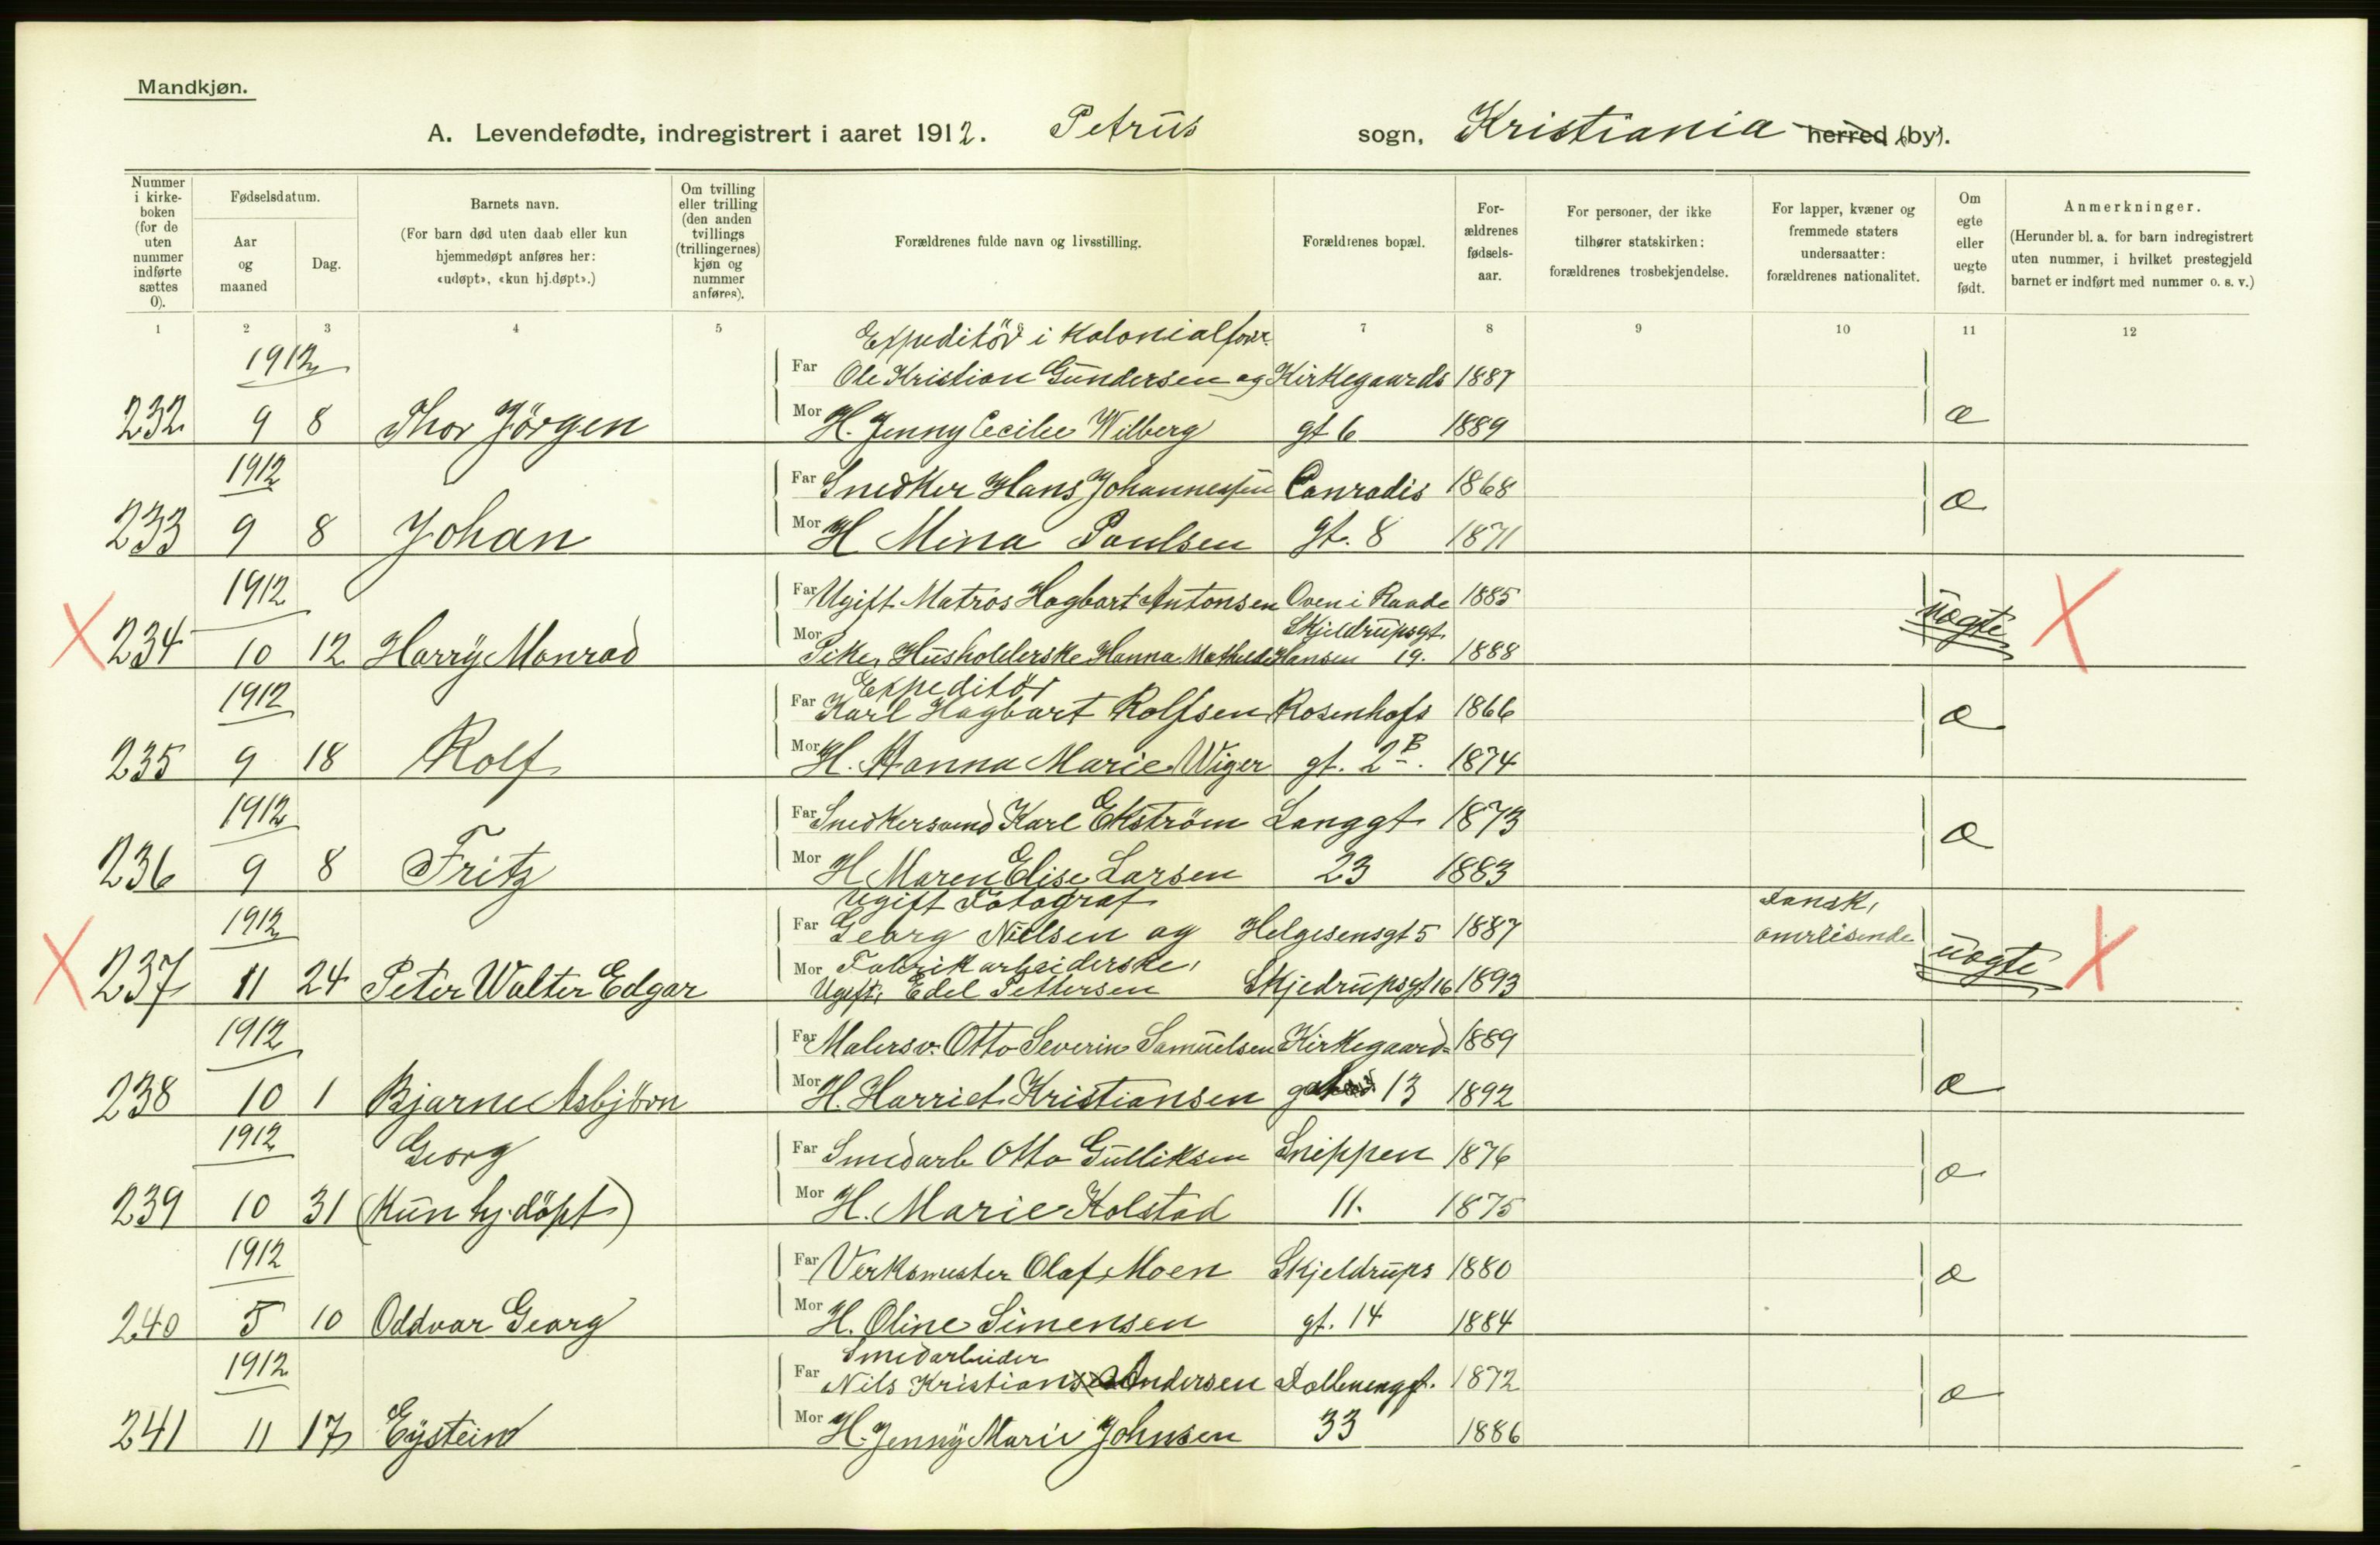 Mandkjøn.
A. Levendefødte, indregistrert i aaret 1912. Petrus sogn, Kristiania herred (by).
Nummer i kirkeboken (for de uten nummer indførte sættes 0).
Fødselsdatum.
Aar og maaned
Dag.
Barnets navn.
(For barn død uten daab eller kun hjemmedøpt anføres her: «udøpt», «kun hj.døpt».)
Om tvilling eller trilling (den anden tvillings (trillingernes) kjøn og nummer anføres).
Forældrenes fulde navn og livsstilling.
Forældrenes bopæl.
For-ældrenes fødsels-aar.
For personer, der ikke tilhører statskirken: forældrenes trosbekjendelse.
For lapper, kvæner og fremmede staters undersaatter: forældrenes nationalitet.
Om egte eller uegte født.
Anmerkninger.
(Herunder bl. a. for barn indregistrert uten nummer, i hvilket prestegjeld barnet er indført med nummer o. s. v.)
1 2 3 4 5 7 8 9 10 11 12
Expeditör i Kolonialforr.
1912 Far Ole Kristian Gundersen og Kirkegaards 1887
232 9 8 Thor Jörgen Mor H. Jenny Cecilie Wilberg gt 6 1889 æ
1912 Far Snedker Hans Johannessen Conradis 1868
233 9 8 Johan Mor H Mina Paulsen gt. 8 1871 æ
1912 Far Ugift Matros Hagbart Antonsen Oven i Raade 1885
Skjeldrupsgt.
X 234 10 12 Harry Monrad Mor Pike, Husholderske Hanna Mathilde Hansen 19. 1888 uægte X
Expeditör
1912 Far Karl Hagbart Rolfsen Rosenhofs 1866
235 9 18 Rolf Mor H. Hanna Marie Wiger gt. 2B. 1874 æ
1912 Far Snedkersvend Karl Ekström Langgt. 1873
236 9 8 Fritz Mor H Maren Elise Larsen 23 1883 æ
Ugift Fotograf Dansk,
1912 Far Georg Nielsen og Helgesensgt 5 1887
Fabrikarbeiderske,
X 237 11 24 Peter Walter Edgar Mor Ugift, Edel Pettersen Skjedrupsgt 16 1893 uægte X
1912 Far Malersv. Otto Severin Samuelsen Kirkegaard= 1889
238 10 1 Bjarne Asbjörn Mor H. Harriet Kristiansen 13 1892 æ
1912 Georg Far Smedarb Otto Gulliksen Snippen 1876
239 10 31 (Kun hj.döpt) Mor H. Marie Kolstad 11. 1875 æ
1912 Far Verksmester Olaf Moen Skjeldrups 1880
240 5 10 Oddvar Georg Mor H. Oline Simensen gt. 14 1884 æ
Smedarbeider
1912 Far Nils Kristian Andersen 1872
241 11 17 Eystein Mor H. Jenny Marie Johnsen 33 1886 æ